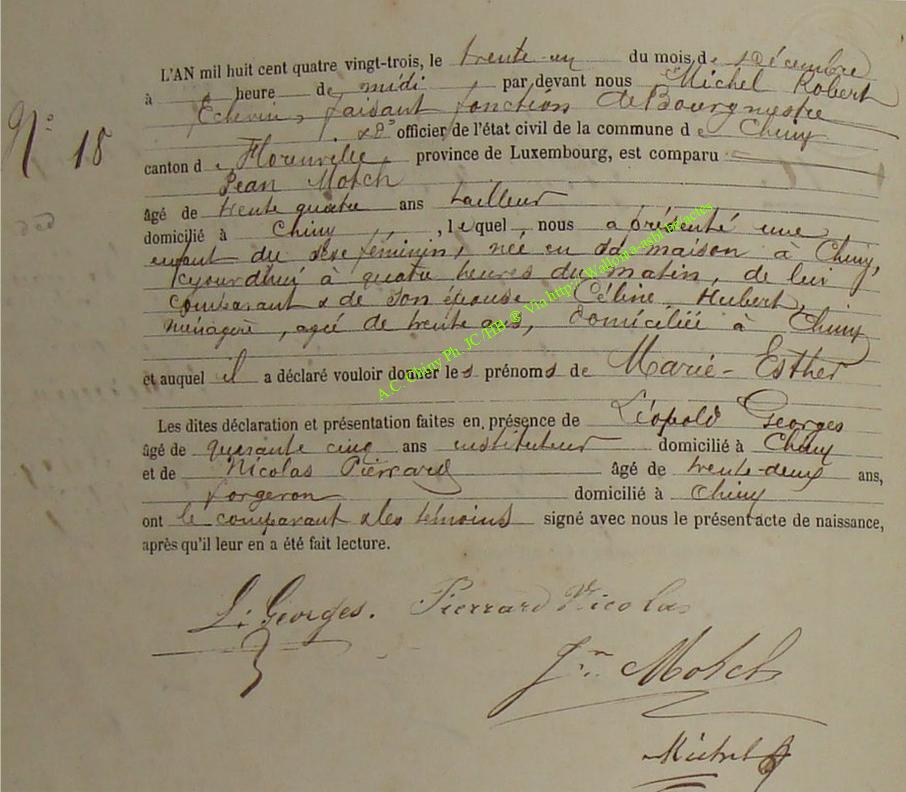 L'AN mil huit cent quatre vingt-trois, le trente-un du mois de Décembre
à heure de midi par devant nous Michel Robert
Echevin, faisant fonction de Bourgmestre
officier de l'état civil de la commune de Chiny
N° 18
canton de Florenville, province de Luxembourg, est comparu
Jean Motch
âgé de trente quatre ans tailleur
domicilié à Chiny, lequel, nous a présenté une
enfant du sexe féminin, née en sa maison à Chiny,
cejourd'hui à quatre heures du matin, de lui
comparant & de son épouse Céline Hubert,
ménagère, agée de trente ans, domiciliée à Chiny
et auquel il a déclaré vouloir donner les prénoms de Marie-Esther
Les dites déclaration et présentation faites en présence de Léopold Georges
âgé de quarante cinq ans instituteur domicilié à Chiny
et de Nicolas Pierrard âgé de trente-deux ans,
forgeron domicilié à Chiny
ont le comparant & les témoins signé avec nous le présent acte de naissance,
après qu'il leur en a été fait lecture.
A.C. Chiny Ph. JC /HB @ Via http://Wallonia-asbl.be/actes
L. Georges. Pierrard Nicolas
Jn Motch
Michel R